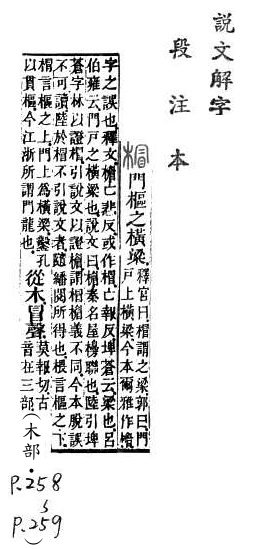 説文解字
段注本
㮌門樞之橫梁
釋宮曰㮌謂之梁郭曰門
戶上橫梁今本爾雅作楣
字之誤也釋文楣亡悲反或作㮌亡報反埤蒼云梁也呂
伯雍云門戶之橫梁也說文曰楣秦名屋櫋聯也陸引埤
蒼字林以證㮌引說文以證楣謂㮌楣義不同今本脫誤
不可讀陸於㮌不引說文者隨繙閱所得也棖言樞之下
㮌言樞之上門上爲橫梁鑿孔
以貫樞今江浙所謂門龍也
從木冒聲
莫報切古
音在三部
(木部.
P.258
P.259)